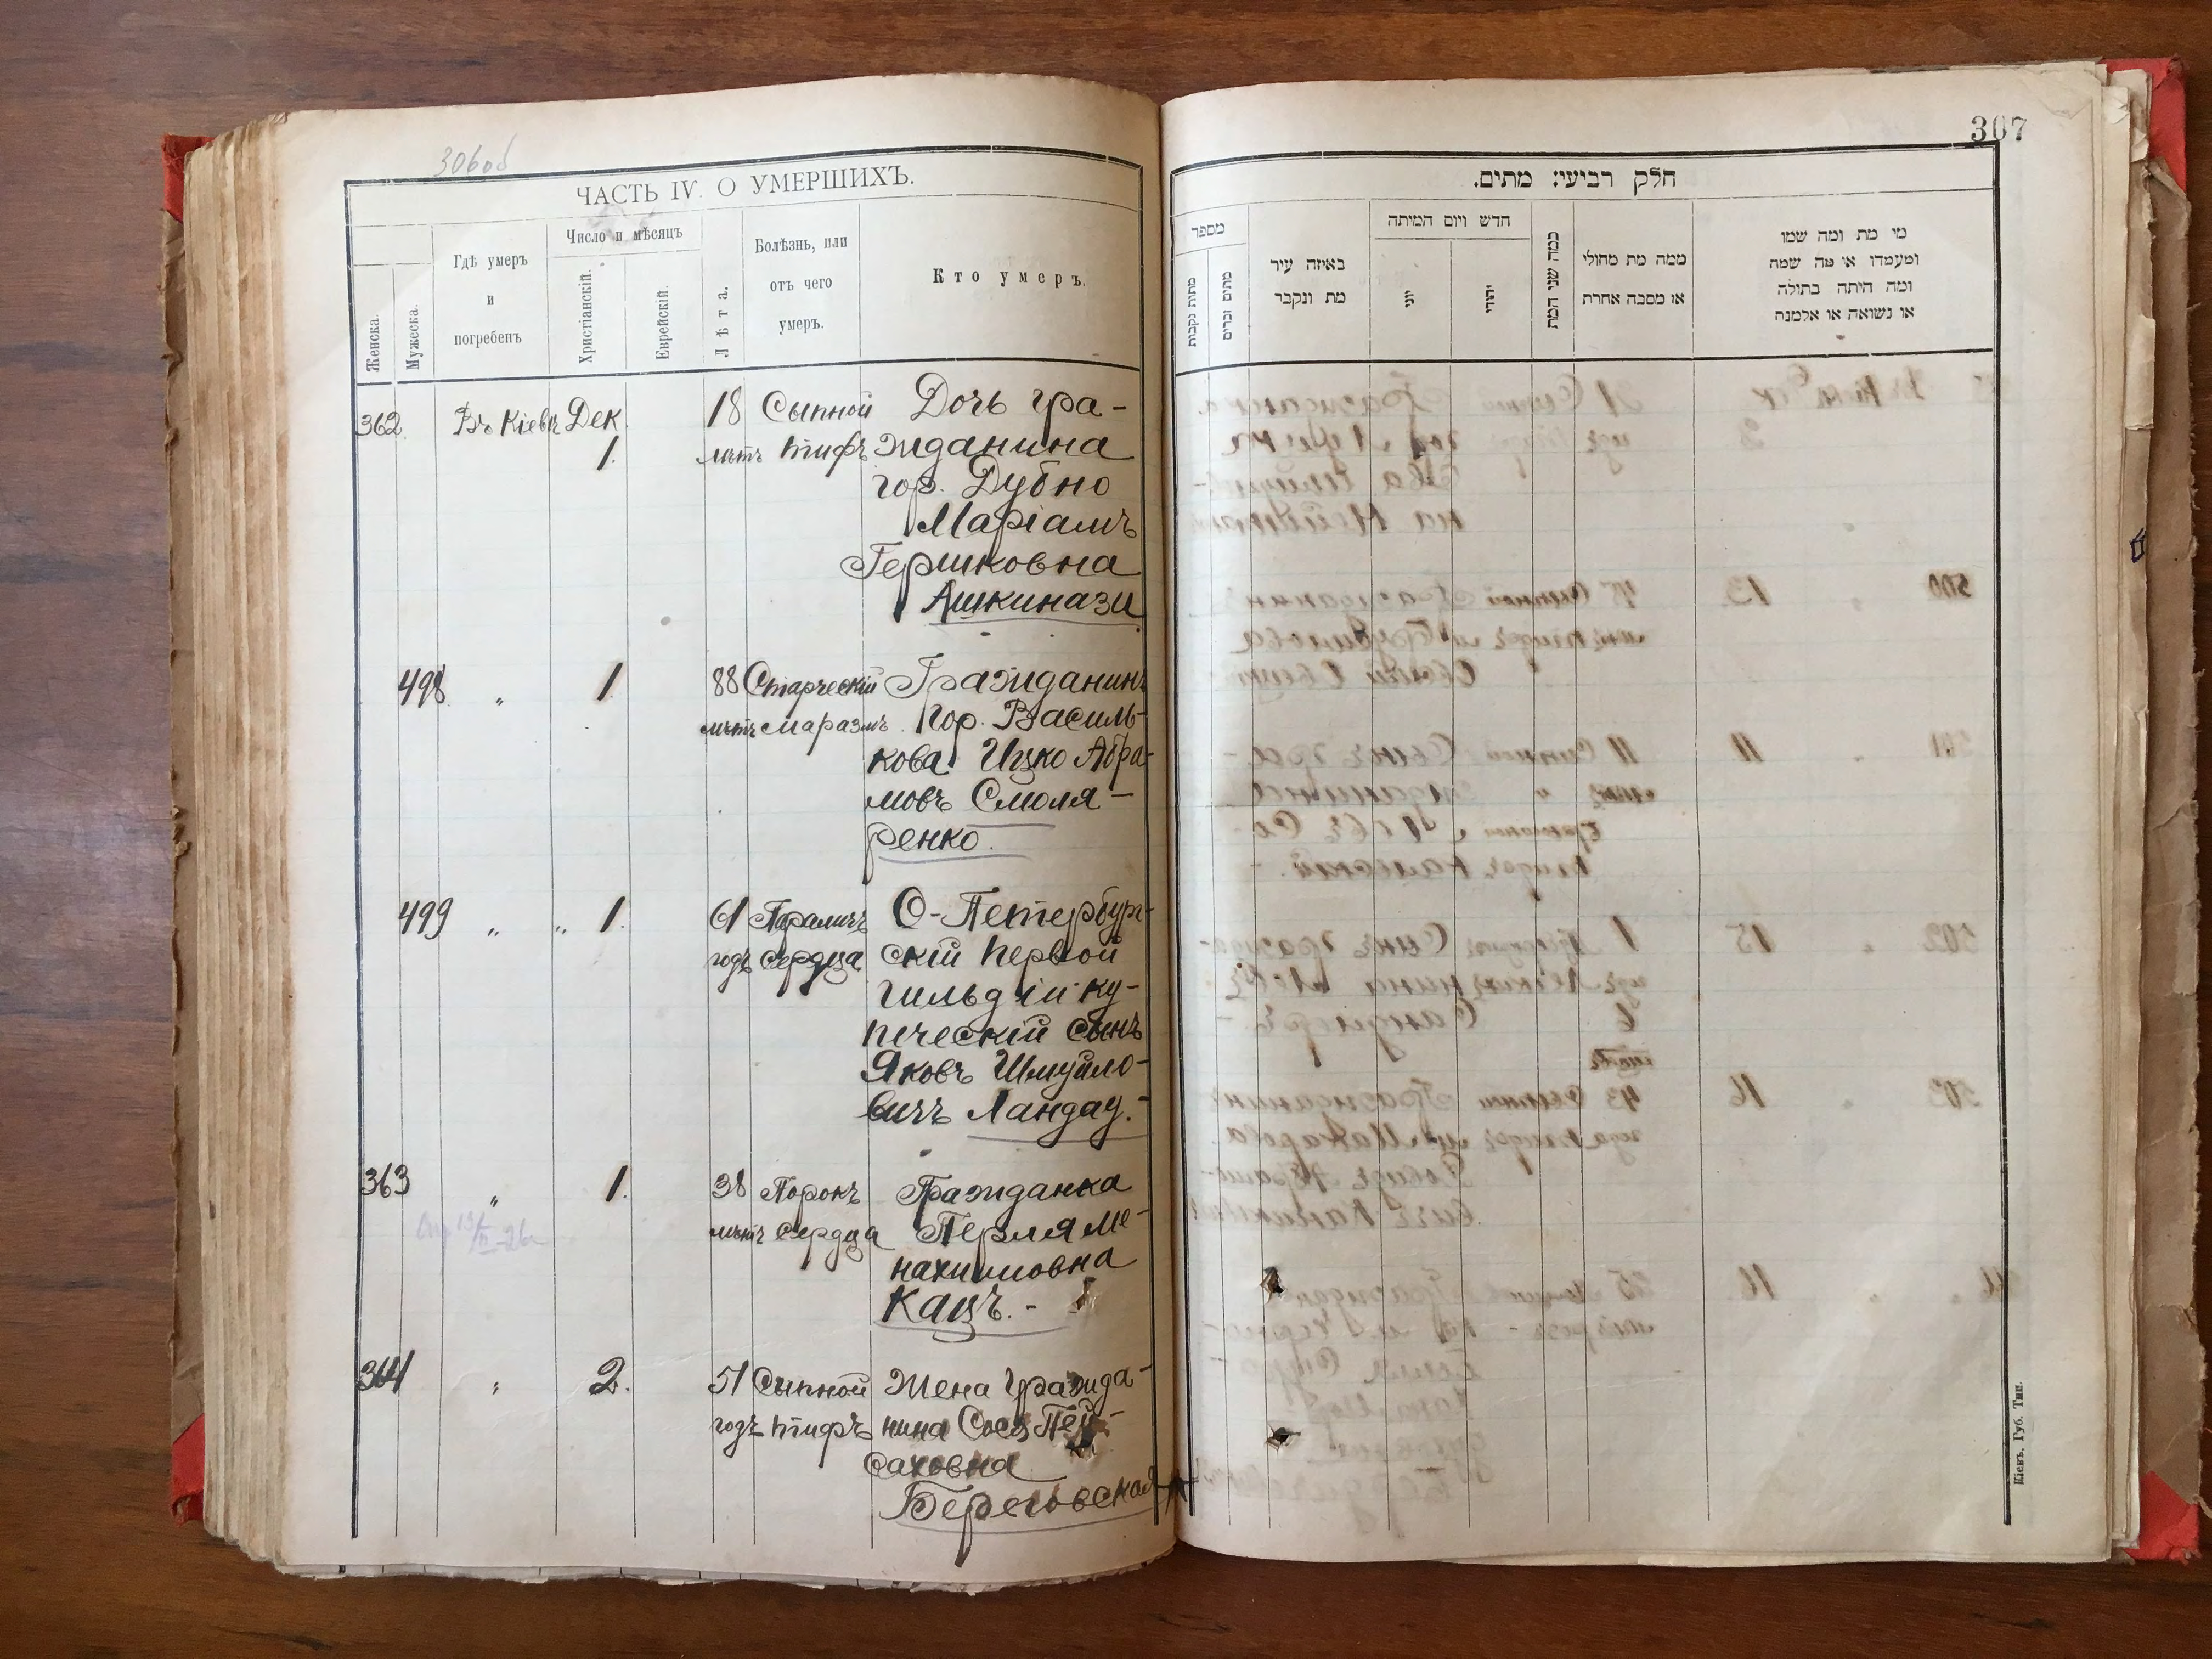 306об
ЧАСТЬ IV. О УМЕРШИХЪ.
Женска.
Мужеска.
Гдѣ умеръ
и
погребенъ
Число и мѣсяцъ
Христіанскій.
Еврейскій.
Лѣта.
Болѣзнь, или
отъ чего
умеръ.
Кто умеръ.
362 Въ Кіевѣ Дек 18 Сыпной Дочь гра-
1. лѣтъ тифъ жданина
гор. Дубно
Маріамъ
Гершковна
Ашкинази
498 „ 1 88 Старческій Гражданинъ
лѣтъ маразмъ. гор. Василь-
кова Ицко Абра-
мовъ Смоля-
ренко.
499 „ „ 1. 61 Параличъ С-Петербург-
годъ сердца скій первой
гильдіи ку-
печескій сынъ
Яковъ Шмуйло-
вичъ Ландау.-
363 „ 1. 38 Порокъ Гражданка
лѣтъ сердца Перля Ме-
нахимовна
Кацъ. -
364 „ 2. 51 Сыпной Жена гражда-
годъ тифъ нина Сося Пей-
саховна
Береговская
307
חלק רביעי: מתים.
מספר
מתות נקבות
מתים זכרים
באיזה עיר
מת ונקבר
חדש ויום המיתה
יוני
יהודי
כמה שני המת
ממה מת מחולי
או מסבה אחרת
מי מת ומה שמו
ומעמדו או מה שמה
ומה היתה בתולה
או נשואה או אלמנה
Кіевъ. Губ. Тип.